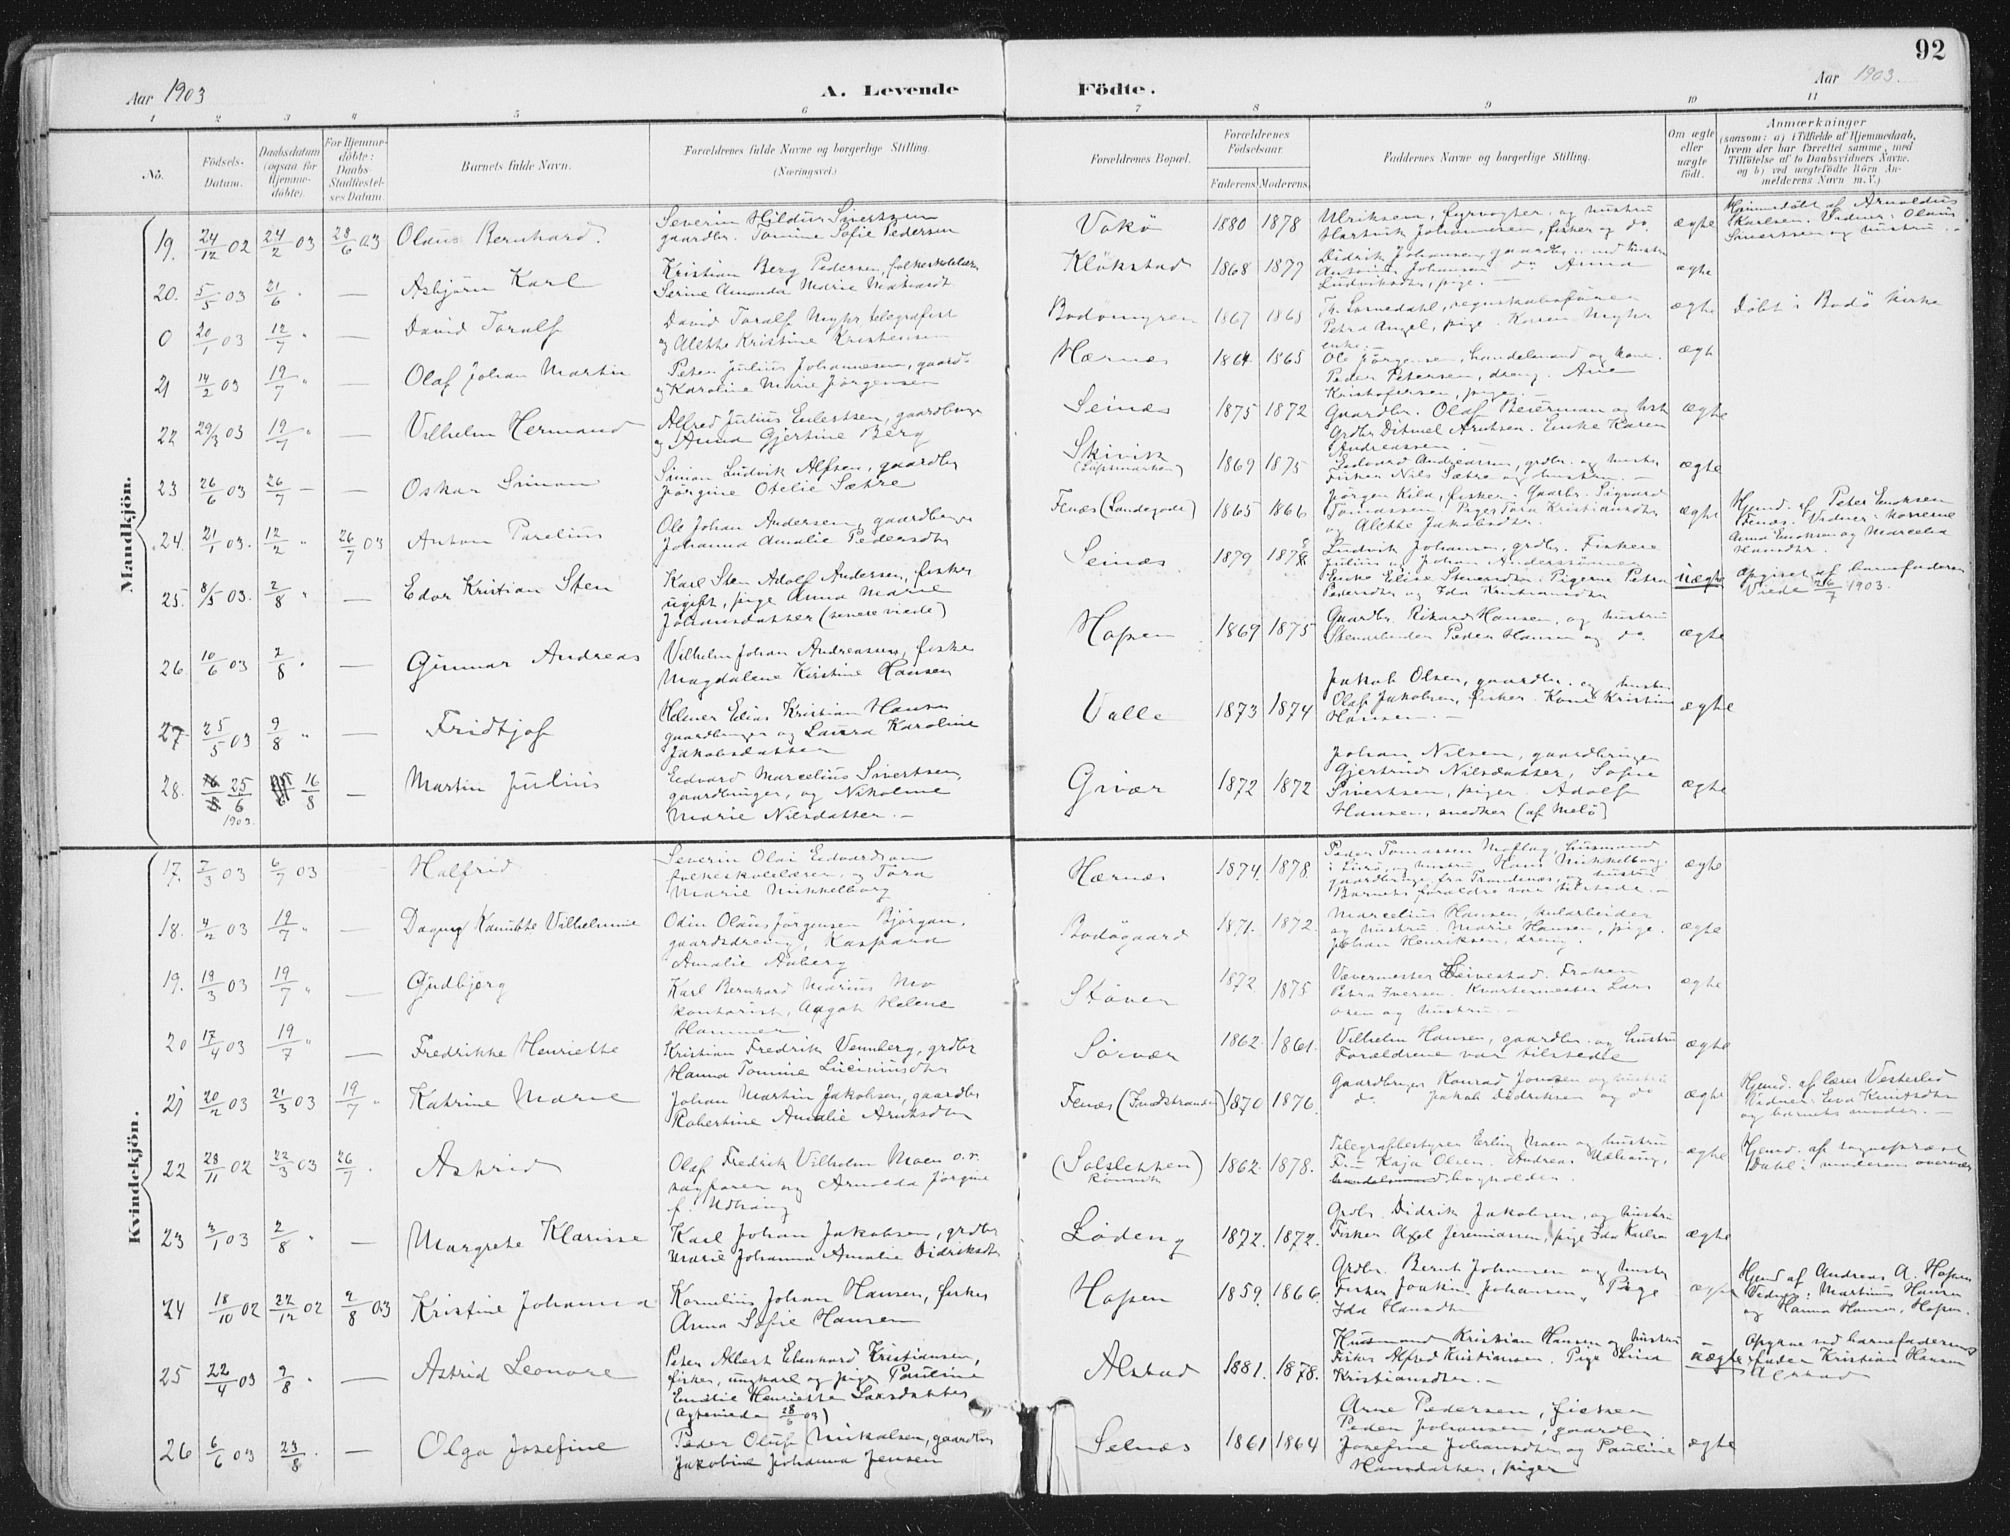 92
Aar 1903
A. Levende
Födte.
Aar 1903.
1 2 3 4 5 6 7 8 9 10 11
No.
Födsels-Datum.
Daabsdatum (ogsaa for Hjemme-döbte).
For Hjemme-döbte: Daabs-Stadfæstel-ses Datum
Barnets fulde Navn.
Forældrenes fulde Navne og borgerlige Stilling.
(Næringsvei.)
Forældrenes Bopæl.
Forældrenes Födselsaar.
Faderens. Moderens.
Faddernes Navne og borgerlige Stilling.
Om ægte eller uægte födt.
Anmærkninger
(saasom: a) i Tilfælde af Hjemmedaab,
hvem der har forrettet samme, med
Tilföielse af to Daabsvidners Navne.
og b) ved uægtefödte Börn An-
melderens Navn m. V.)
Mandkjön.
19. 24/12 02 24/2 03 28/6 03 Olaus Bernhard.
Severin Hildur Sivertsen
gaardbr. Tomine Sofie Pedersen
Vokö 1880 1878
Ulriksen, fyrvogter og hustru
Hartvik Johannesen, fisker og do.
ægte
Hjemmedöbt af Arnoldus
Karlsen. Vidner: Olaus
Sivertsen og hustru.
20. 5/5 03 21/6 — Asbjörn Karl
Kristian Berg Pedersen, folkeskolelærer
Serine Amanda Marie
Klökstad 1868 1877
Didrik Johansen, gaardbr. med hustru
Antonius Johansen do. Anna
Ludviksdtr, pige. —
ægte
0 20/1 03 12/7 " — David Toralf
David Toralf Myhr telegrafist
og Alette Kristine Kristensen
Bodömyren 1867 1865
regnskabsförer
Petra Angel, pige. Karen Myhr
enke. —
ægte
Döbt i Bodö kirke
21 14/2 03 19/7 " — Olaf Johan Martin
Peter Julius Johannesen, gaardb.
og Karoline Marie Jörgensen
Hernes 1864 1865
Ole Jörgensen, handelsmand og kone.
Peder Petersen, dreng. Ane
Kristofersen, pige. —
ægte
22 29/3 03 19/7 " — Vilhelm Hermand
Alfred Julius Eulertsen, gaardbruger
og Anna Gjertine Berg
Seinæs 1875 1872
Gaardbr. Olaf Beierman og hst
Grdbr Ditmel Arntsen. Enke Karen
Andreassen —
ægte
23 26/6 03 26/7 — — Oskar Simon
Simon Ludvik Alfsen, gaardbr
Jörgine Otelie Sætre
Skivik
1869 1875
Edvard Andreassen, grdbr. og hustru
Fisker Nils Sætre og hustru. —
ægte
24. 21/1 03. 12/2 " 26/7 03 Anton Parelius
Ole Johan Andersen, gaardbruger
Johanna Amalie Pedersdtr
Fenæs (Landegode) 1865 1866
Jörgen Kild, fisker. Gaardbr. Sigvard
Tomassen. Piger Tora Kristiansdtr
og Alette Jakobsdtr.
ægte
Hjemd. af Peter Enoksen
Fenæs. Vidner: konerne
Anna Enoksen og Marcelia
Hansdtr.
25. 8/5 03. 2/8 " — Edor Kristian Sten
Karl Sten Adolf Andersen, fisker
ugift, pige Anna Marie
Johansdatter (senere viede)
Seinæs 1879
Ludvik Johansen, grdbr. Fiskere
Julius og Johan Anderssönner
Enke Elise Stensdtr. Pigerne Petra
Pedersdtr og Ida Kristiansdtr
uægte
Opgivet af barnefaderen
Viede 26/7 1903.
26. 10/6 03 2/8 " — Gunnar Andreas
Vilhelm Johan Andreassen, fisker
Magdalene Kirstine Hansen
Hopen 1869 1875
Gaardbr. Rikard Hansen, og hustru
Stenarbeider Peder Hansen og do.
ægte
27. 25/5 03 9/8 " — Fridtjof
Helmer Edias Kristian Hansen
gaardbruger og Laura Karoline
Jakobsdatter
Valle 1873 1874
Jakob Olsen, gaardbr. og hustru
Olaf Jakobsen, fisker. Kone Kristine
Hansen. —
ægte
28. 25/6 1903. 16/8 — Martin Julius
Edvard Marcelius Sivertsen,
gaardbruger, og Nikoline
Marie Nilsdatter. —
Givær 1872 1872
Johan Nilsen, gaardbruger
Gjertrud Nilsdatter, Sofie
Sivertsen, piger. Adolf
Hansen, snedker (af Melö)
ægte
Kvindekjön.
17. 7/3 03 6/7 03 Halfrid
Severin Olai Edvardsen
folkeskolelærer, og Tora
Marie Mikkelborg
Hernæs 1874. 1878.
Peder Tomassen Moflag, husmand
i Lurö, og hustru. Hans Mikkelborg,
gaardbruger fra Trondenæs, og hustru
Barnets forældre var tilstede. —
ægte
18. 4/2 03 19/7 " — Dagny Kamitte Vilhelmine
Odin Olaus Jörgensen Björgan,
gaardsdreng, Kaspara
Amalie Aaberg
Bodögaard 1871. 1872.
Marcelius Hansen, kularbeider
og hustru. Marie Hansen, pige.
Johan Henriksen, dreng.
ægte
19. 18/3 03 19/7 " — Gudbjörg
Karl Bernhard Marius Mo
kontorist, Aagot Helene
Hammer
Stöver 1872 1875
Vævermester Leivestad. Fröken
Petra Iversen. Kvartermester Lars
Osen og hustru. —
ægte
20 17/4 03 19/7 " — Fredrikke Henriette
Kristian Fredrik Vennberg, grdbr
Hanna Tomine Lucinusdtr
Sörvær 1862. 1861.
Vilhelm Hansen, gaardbr. og hustru
Forældrene var tilstede
ægte
21 20/2 03 21/3 03 19/7 " Katrine Marie
Johan Martin Jakobsen, gaardbr
Robertine Amalie Arntsdtr
Fenæs (Sundstranden) 1870 1876.
Gaardbruger Konrad Jonsen og hustru
do. Jakob Didriksen og do
ægte
Hjemd. af lærer Vesterlid
Vidner: Eva Knutsdtr
og barnets moder. —
22 28/11 02 22/3 03 26/7 . Astrid
Olaf Fredrik Vilhelm Moen o.r.
sagförer og Arnolda Jörgine
f. Udhaug
(Solsletten)
Rönvik
1862. 1878.
Telegrafbestyrer Erling Moen og hustru
Fru Kaja Olsen. Andreas Udhaug,
bogholder.
ægte
Hjemd. af sogneprest
Dahl i moderens overvær
23 3/1 03 2/8 " — Margrete Klarisse
Karl Johan Jakobsen, grdbr
Marie Johanna Amalie Didriksdtr
Löding 1872. 1872.
Grdbr. Didrik Jakobsen, og hustru
Fisker Axel Jeremiassen, pige Ida Karlsen
ægte
24 18/10 02 22/12 02 2/8 03 Kristine Johanna
Kornelius Johan Hansen, fisker
Anna Sofie Hansen
Hopen 1859. 1866.
Grdbr. Bernt Johansen og hustru
Fisker Joakim Johansen, Pige
Ida Hansdtr
ægte
Hjemd af Andreas A. Hopen
Vidner: Martinus Hansen
og Hanna Hansen, Hopen.
25 22/4 03 9/8 " — Astrid Leonore
Peter Albert Edvard Kristiansen,
fisker, ungkarl og pige Pauline
Emilie Henriette Larsdatter
(Ægteviede 28/6 03)
Alstad 1881. 1878.
Husmand Kristian Hansen og hustru
Fisker Alfred Kristiansen. Pige Lina
Kristiansdtr. —
uægte
Opgivne ved barnefaderens
fader Kristian Hansen
Alstad
26 6/6 03 23/8 . — Olga Josefine
Peder Oluf Mikalsen, gaardbr
Jakobine Johanna Jensen
Selnæs 1861 1864
Arne Pedersen, fisker
Peder Johansen, gaardbr.
Josefine Johansdtr og Pauline
Hansdatter, piger
ægte